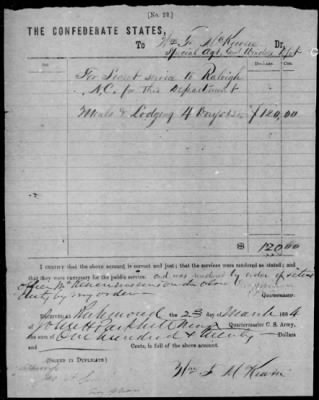 [No. 22]
THE CONFEDERATE STATES,
To Wm F. McKewen Dr.
Special Agt. Genl Winders Dept
DOLLARS Cts.
For Secret service to Raleigh
N.C. for this Department
Meals & Lodging 4 Days $120,00
$ 120,00
I CERTIFY that the above account is correct and just; that the services were rendered as stated; and
that they were necessary for the public service. and was rendered by order of
duty by my order
Quartermaster.
Richmond the 23 of March 1864
of John H Parkhill Quartermaster C. S. Army,
the sum of One hundred & twenty Dollars
and Cents, in full of the above account.
[SIGNED IN DUPLICATE]
Wm F McKewen